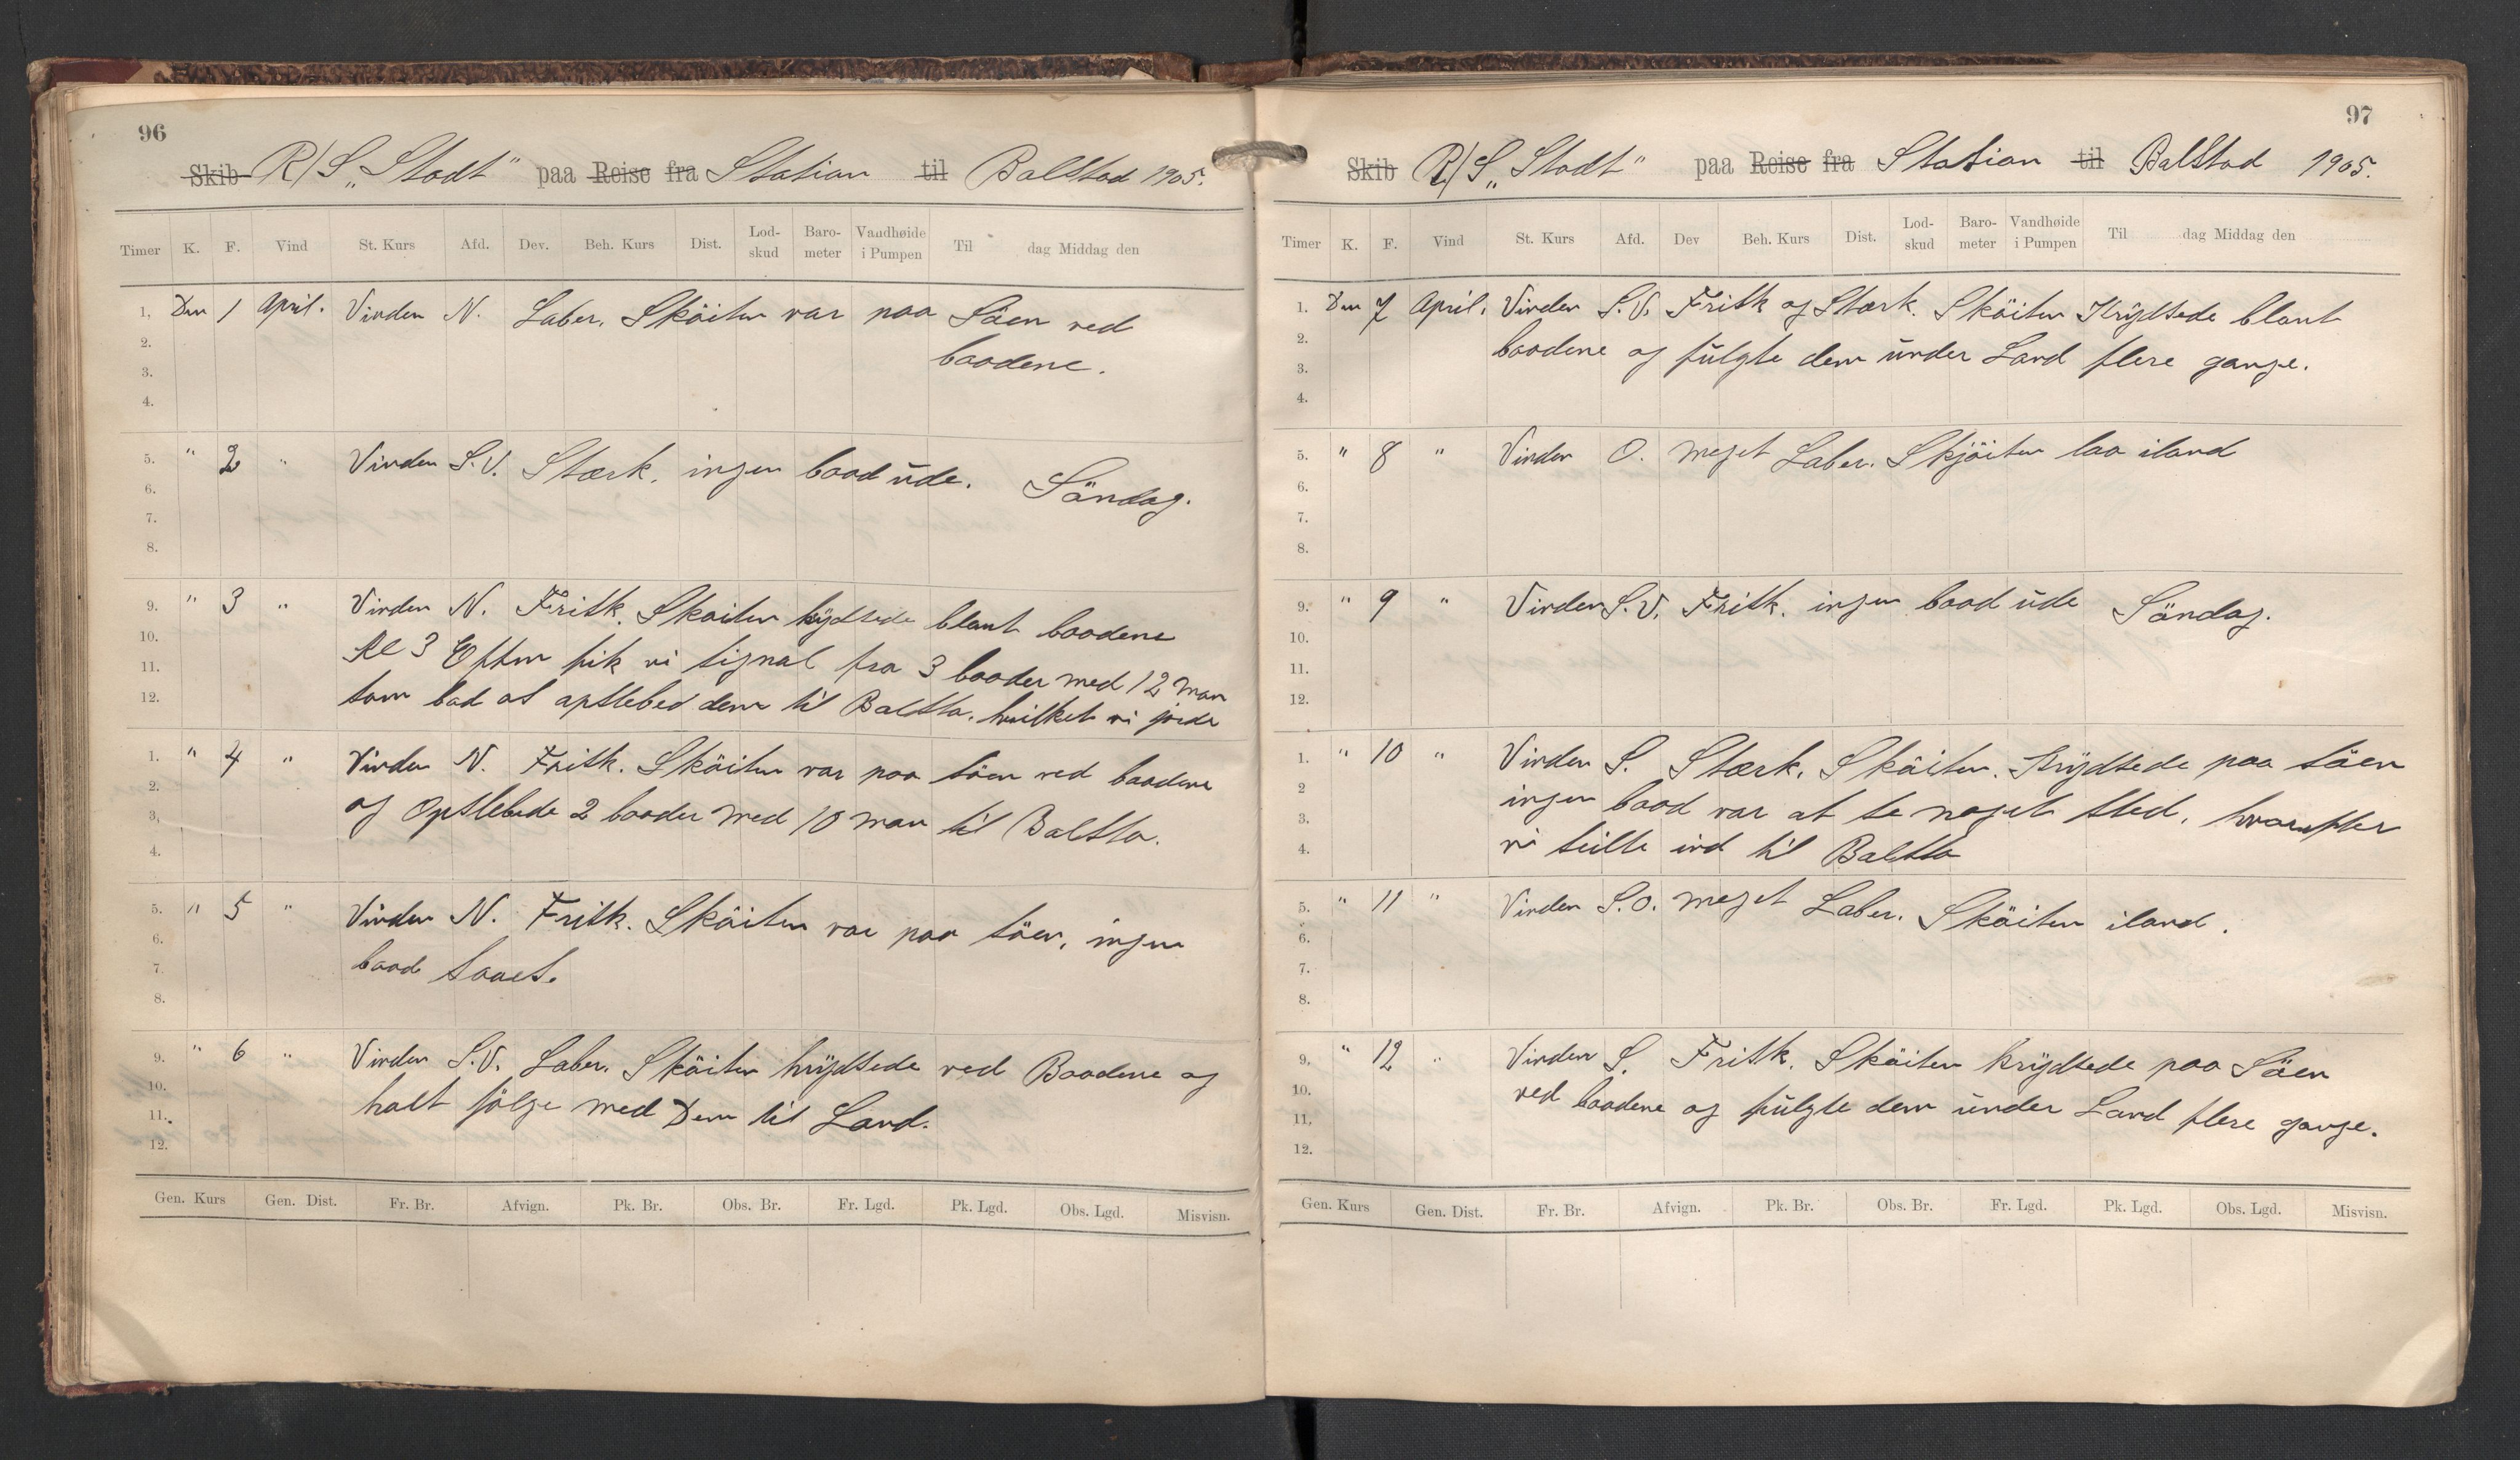 96
Skib R/S „Stadt" paa Reise fra Station til Balstad 1905.
Timer K. F. Vind St. Kurs Afd. Dev. Beh. Kurs Dist. Lod-skud Baro-meter Vandhøide i Pumpen Til dag Middag den
1. Den 1 April. Vinden N. Laber. Sköiten var paa Söen ved
2. baadene.
3.
4.
5. " 2 " Vinden S.V. Stærk, ingen baad ude. Söndag.
6.
7.
8.
9. " 3 " Vinden N. Frisk. Skoiten krydsede blant baadene
10. Kl 3 Efttm fik vi signal fra 3 baader med 12 man
11. som bad at opslebed dem til Balsta, hvilket vi jorde
12.
1. " 4 " Vinden N. Frisk. Sköiten var paa söen ved baadene
2. og Opslebede 2 baader med 10 man til Balsta.
3.
4.
5. " 5 " Vinden N. Frisk. Sköiten var paa söen, ingen
6. baad saaes.
7.
8.
9. " 6 " Vinden S.V. Laber. Sköiten krydsede ved Baadene og
10. halt fölge med Dem til Land.
11.
12.
Gen. Kurs Gen. Dist. Fr. Br. Afvign. Pk. Br. Obs. Br. Fr. Lgd. Pk. Lgd. Obs. Lgd. Misvisn.
97
Skib R/S „Stadt" paa Reise fra Station til Balstad 1905.
Timer K. F. Vind St. Kurs Afd. Dev Beh. Kurs Dist. Lod-skud Baro-meter Vandhøide i Pumpen Til dag Middag den
1. Den 7 April. Vinden S.V. Frisk og Stærk. Sköiten Krydsede blant
2. baadene og fulgte dem under Land flere gange.
3.
4.
5. " 8 " Vinden O. meget Laber. Skjöiten laa iland
6.
7.
8.
9. " 9 " Vinden S.V. Frisk. ingen baad ude Söndag.
10.
11.
12.
1. " 10 " Vinden S. Stærk. Sköiten. Krydsede paa söen
2 ingen baad var at se noget sted, hvorefter
3. vi seilte ind til Balsta
4.
5. " 11 " Vinden S.O. meget Laber. Sköiten iland.
6.
7.
8.
9. " 12 " Vinden S. Frisk. Sköiten krydsede paa Söen
10. ved baadene og fulgte dem under Land flere gange.
11.
12.
Gen. Kurs Gen. Dist. Fr. Br. Afvign. Pk. Br. Obs. Br. Fr. Lgd. Pk. Lgd. Obs. Lgd. Misvisn.